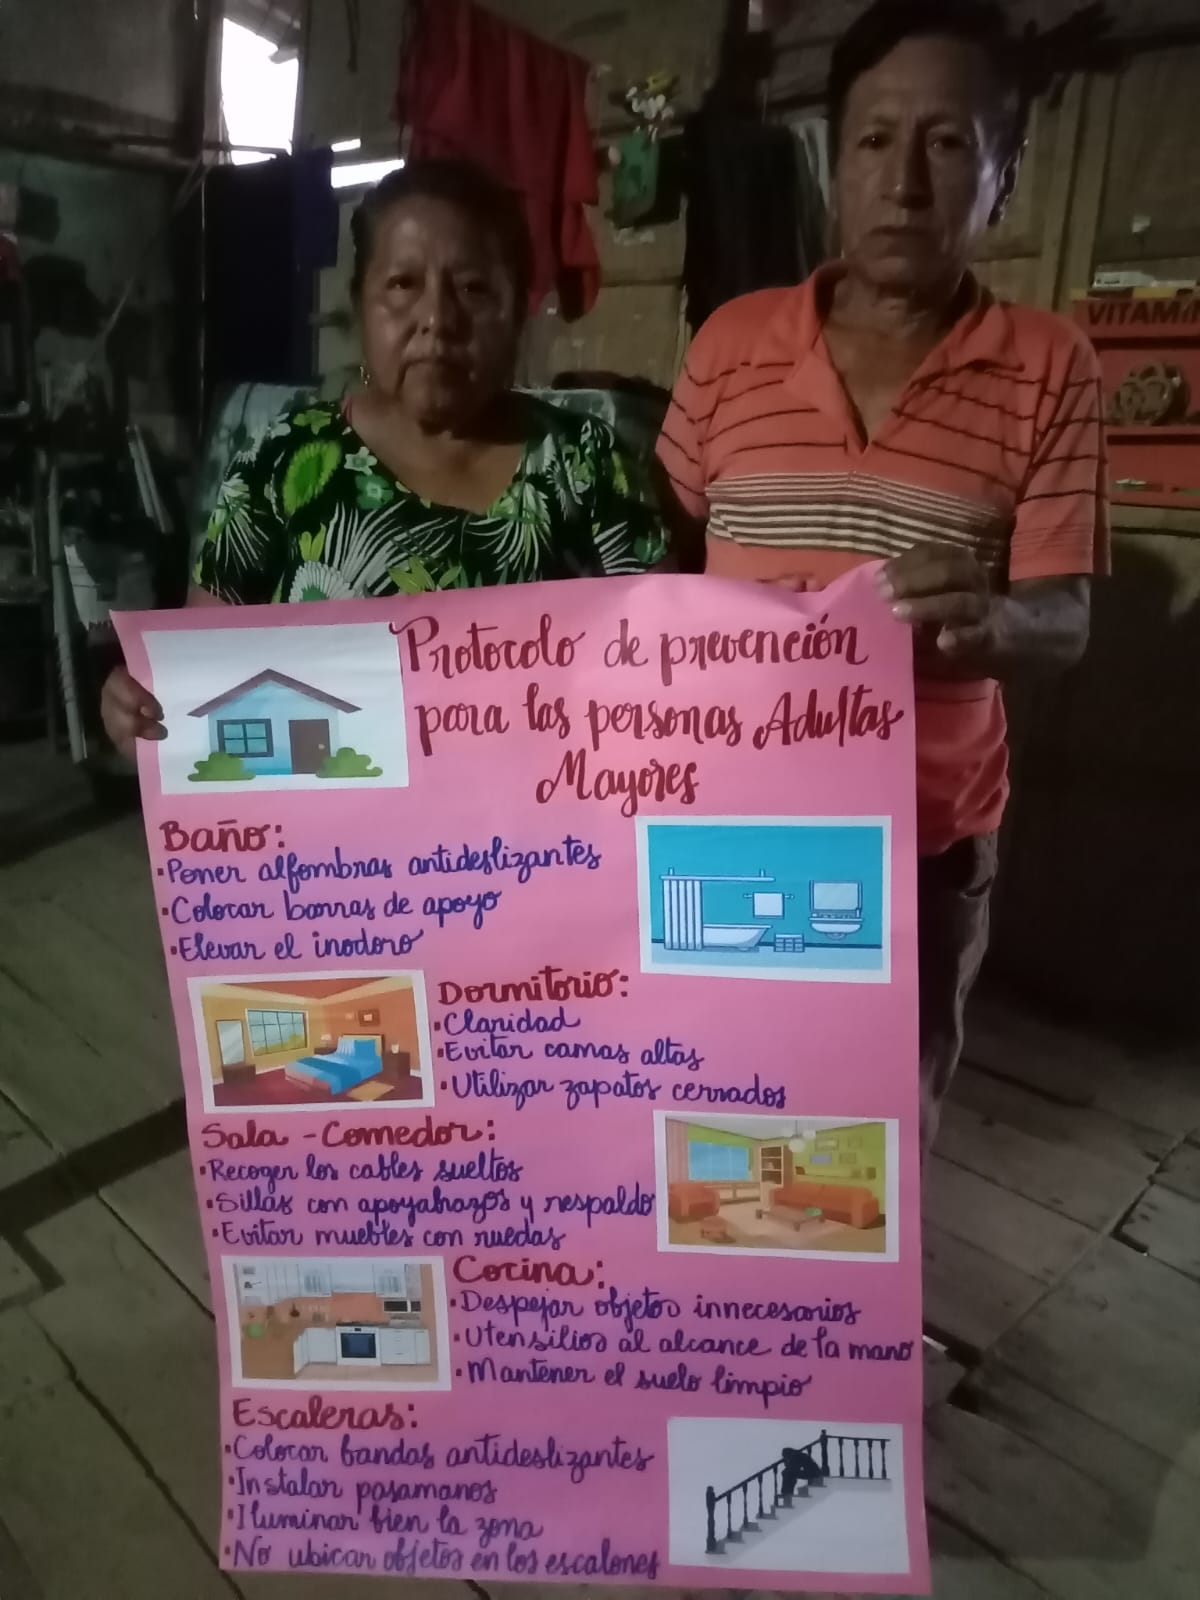 VITAMI
Protocolo de prevención
para las personas Adultas
Mayores
Baño:
•Poner alfombras antideslizantes
•Colocar barras de apoyo
•Elevar el inodoro
Dormitorio:
•Claridad
•Evitar camas altas
•Utilizar zapatos cerrados
Sala - Comedor:
•Recoger los cables sueltos
•Sillas con apoyabrazos y respaldo
•Evitar muebles con ruedas
Cocina:
•Despejar objetos innecesarios
•Utensilios al alcance de la mano
•Mantener el suelo limpio
Escaleras:
•Colocar bandas antideslizantes
•Instalar pasamanos
•Iluminar bien la zona
•No ubicar objetos en los escalones